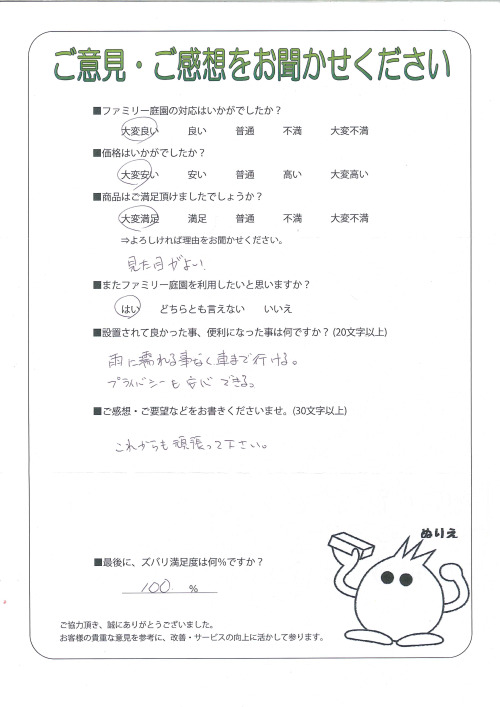 ご意見・ご感想をお聞かせください
■ファミリー庭園の対応はいかがでしたか？
大変良い 良い 普通 不満 大変不満
■価格はいかがでしたか？
大変安い 安い 普通 高い 大変高い
■商品はご満足頂けましたでしょうか？
大変満足 満足 普通 不満 大変不満
⇒よろしければ理由をお聞かせください。
見た目がよい!
■またファミリー庭園を利用したいと思いますか？
はい どちらとも言えない いいえ
■設置されて良かった事、便利になった事は何ですか？(20文字以上)
雨に濡れる事なく車まで行ける。
プライバシーも安心できる。
■ご感想・ご要望などをお書きくださいませ。(30文字以上)
これからも頑張って下さい。
ぬりえ
■最後に、ズバリ満足度は何％ですか？
100 %
ご協力頂き、誠にありがとうございました。
お客様の貴重な意見を参考に、改善・サービスの向上に活かして参ります。